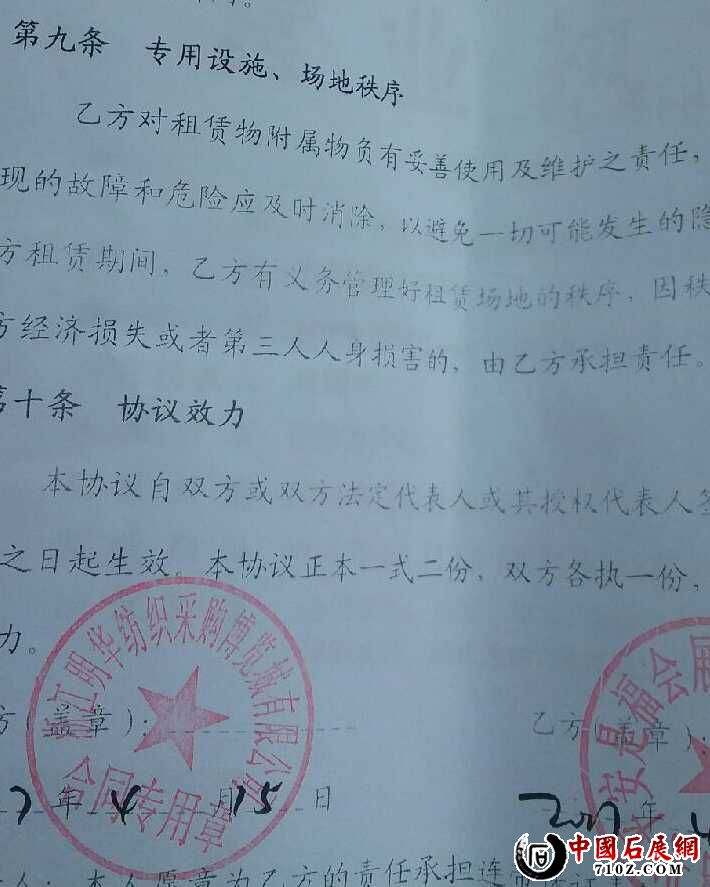 第九条　专用设施、场地秩序
乙方对租赁物附属物负有妥善使用及维护之责任，
现的故障和危险应及时消除，以避免一切可能发生的隐
方租赁期间，乙方有义务管理好租赁场地的秩序，因秩
方经济损失或者第三人人身损害的，由乙方承担责任。
第十条　协议效力
本协议自双方或双方法定代表人或其授权代表人签
之日起生效。本协议正本一式二份，双方各执一份，
力。
浙江明华纺织采购博览城有限公司
合同专用章
安是福会展
方（盖章）：
乙方（盖章）：
7年4月15日
2017年4
人：本人愿意为乙方的责任承担连
中國石展網
71OZ.COM